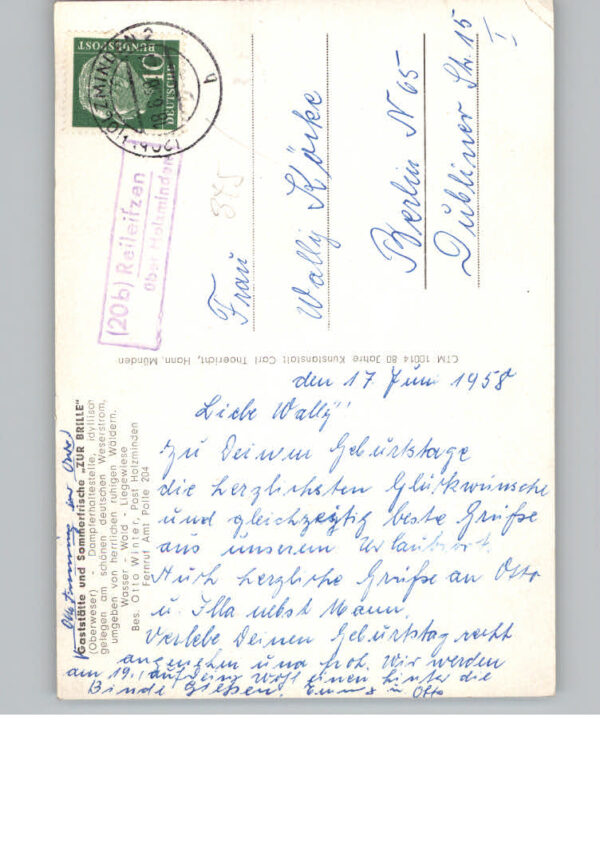 DEUTSCHE
BUNDESPOST
10
HOLZMINDEN 2
b
(20b) Reileifzen
über Holzminden
345
Frau
Wally Körke
Berlin N 65
Dubliner Str. 15
I
CTM 10014 80 Jahre Kunstanstalt Carl Thoericht, Hann. Münden
Gaststätte und Sommerfrische „ZUR BRILLE"
(Oberweser) - Dampferhaltestelle, idyllisch
gelegen am schönen deutschen Weserstrom,
umgeben von herrlichen ruhigen Wäldern.
Wasser - Wald - Liegewiese
Bes. Otto Winter, Post Holzminden
Fernruf Amt Polle 204
den 17. Juni 1958
Liebe Wally!
Zu Deinem Geburtstage
die herzlichsten Glückwünsche
und gleichzeitig beste Grüße
aus unserem Urlaubsort.
Auch herzliche Grüße an Otto
u. Illa nebst Mann.
Verlebe Deinen Geburtstag recht
angenehm und froh. Wir werden
am 19. auf Dein Wohl einen hinter die
Binde giessen. Emma u. Otto